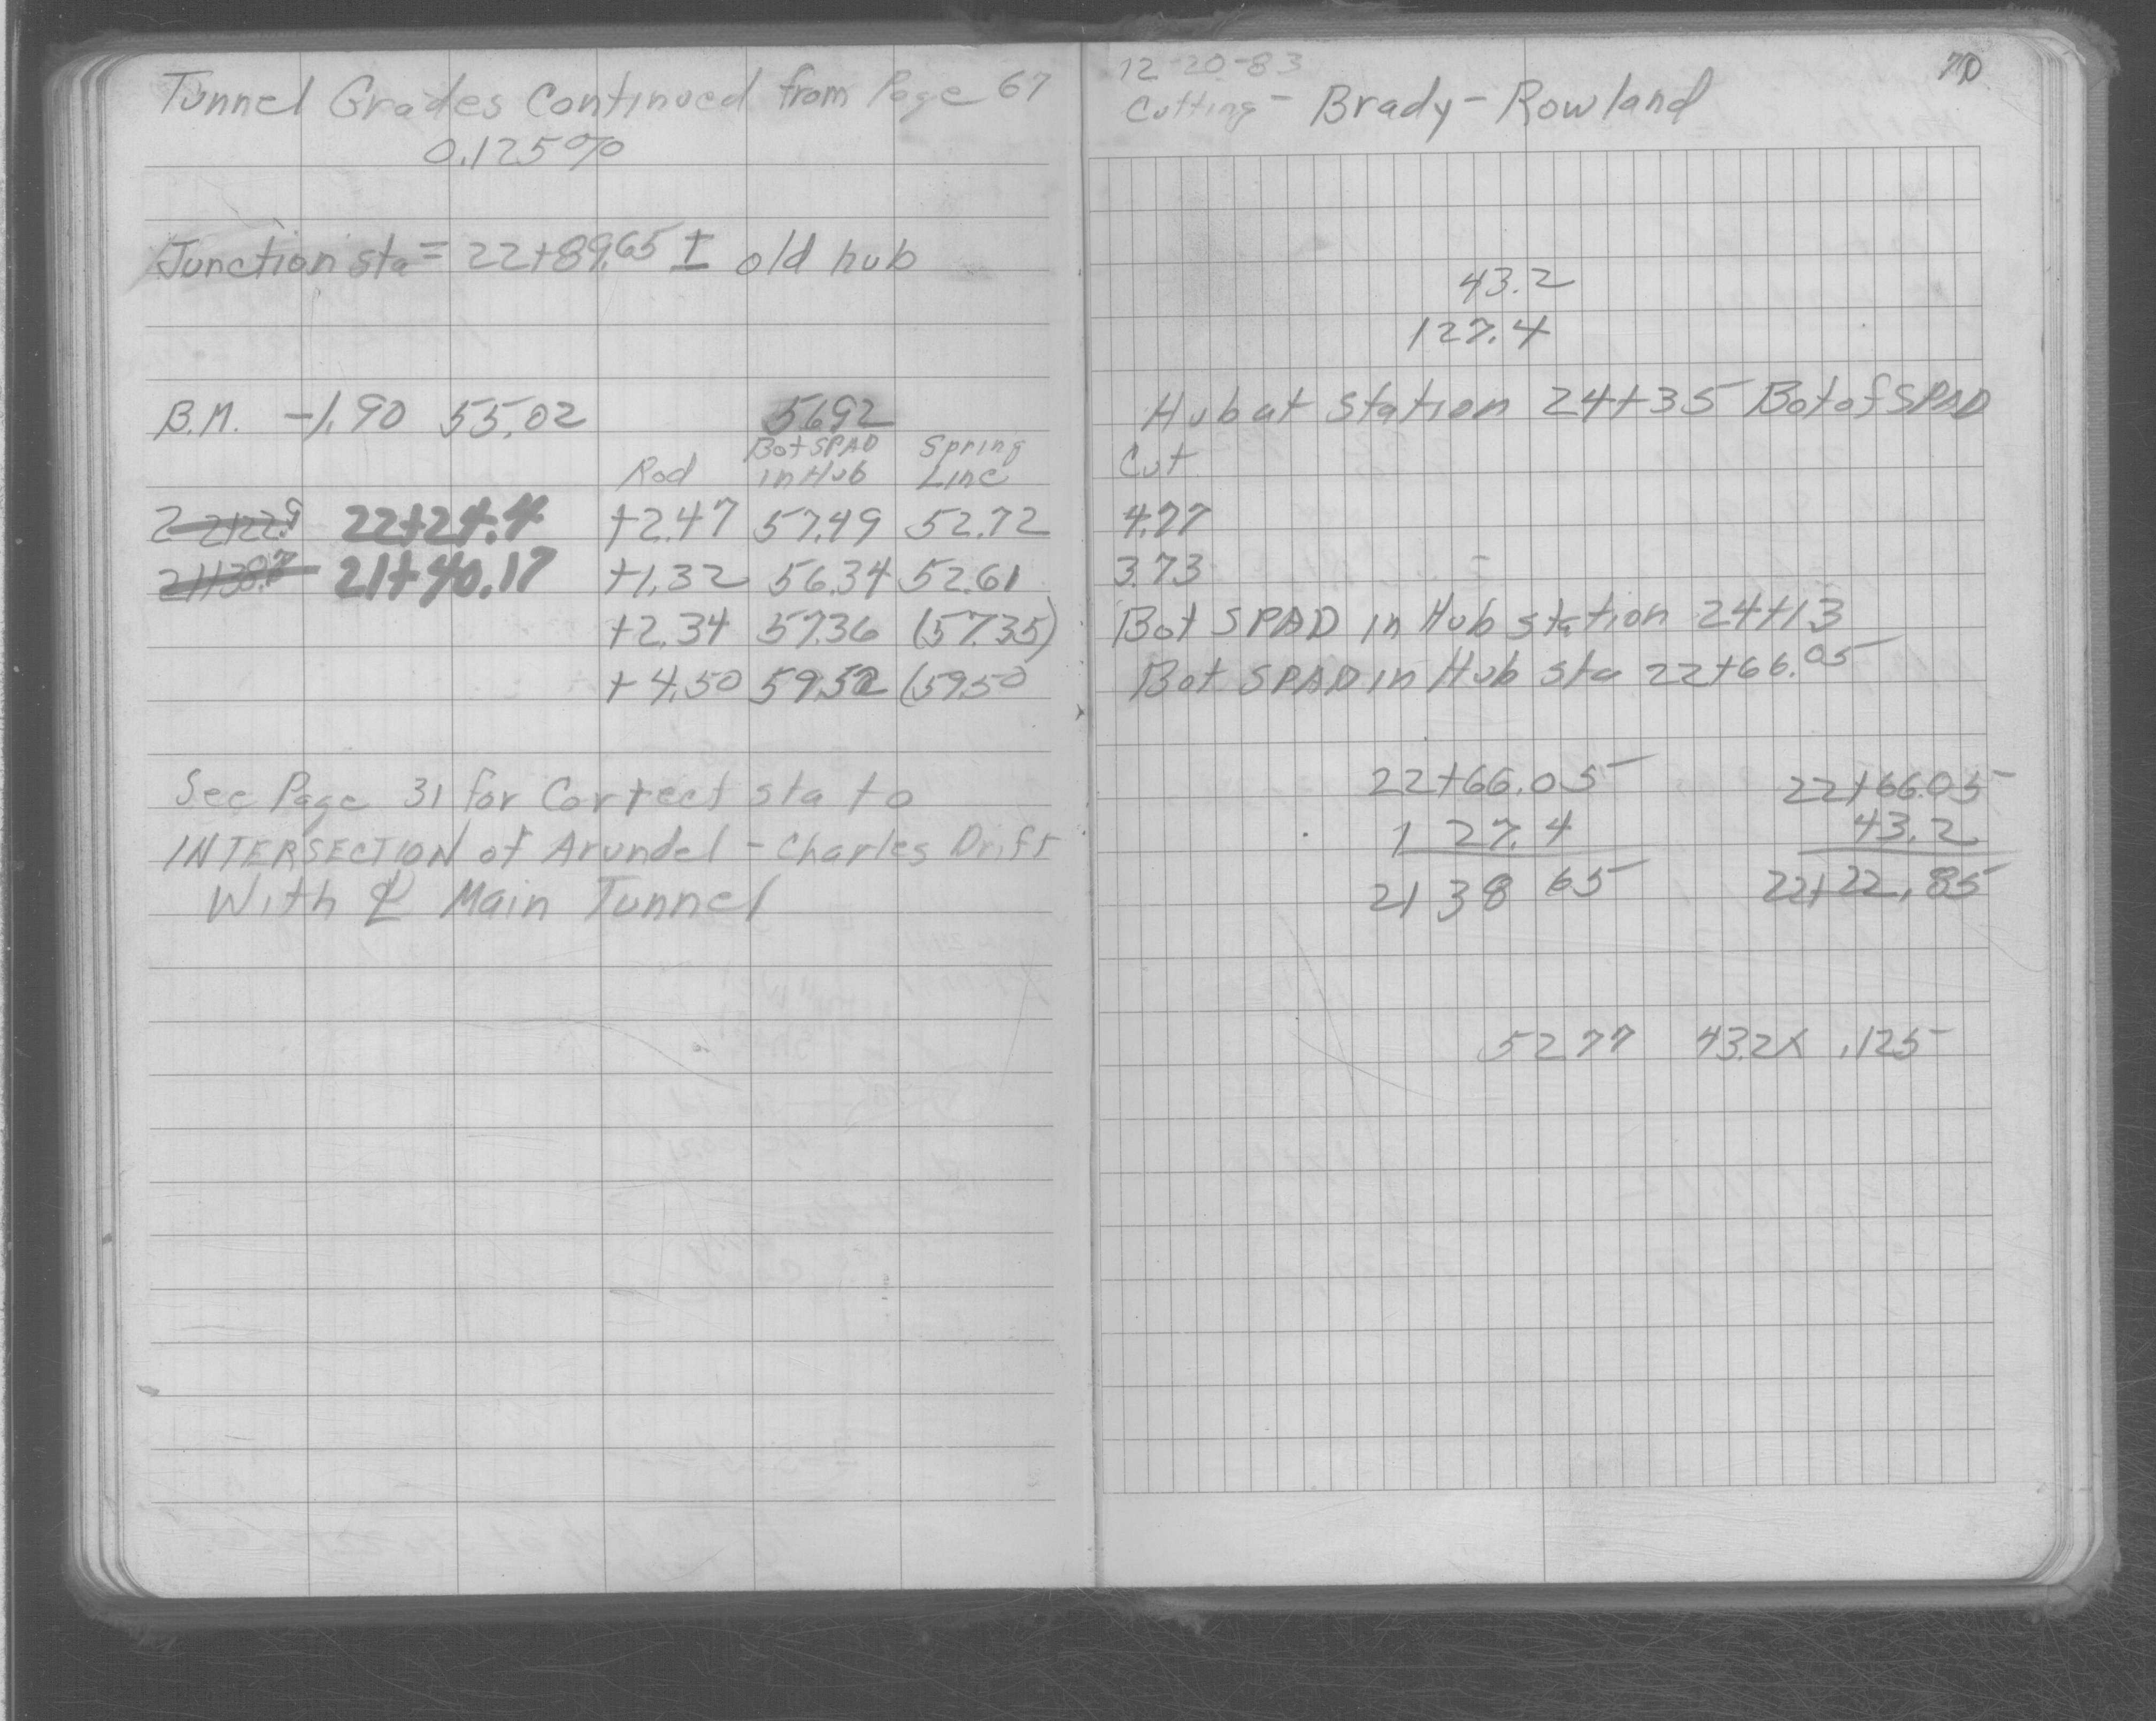 Tunnel Grades Continued from Page 67
0.125%
Junction sta = 22+89.65 ± old hub
B.M. -1.90 55.02 56.92
Rod Bot SPAD in Hub Spring Line
2 2+22.9 22+24.4 +2.47 57.49 52.72
21+38.7 21+40.17 +1.32 56.34 52.61
+2.34 57.36 (57.35)
+4.50 59.52 (59.50
See Page 31 for Correct sta to
INTERSECTION of Arundel - Charles Drift
With ℄ Main Tunnel
12-20-83 70
Cutting - Brady - Rowland
43.2
127.4
Hub at Station 24+35 Bot of SPAD
Cut
4.77
3.73
Bot SPAD in Hub station 24+13
Bot SPAD in Hub sta 22+66.05
22+66.05 22+66.05
1 27.4 43.2
21 38 65 22+22.85
52 77 43.2 x .125